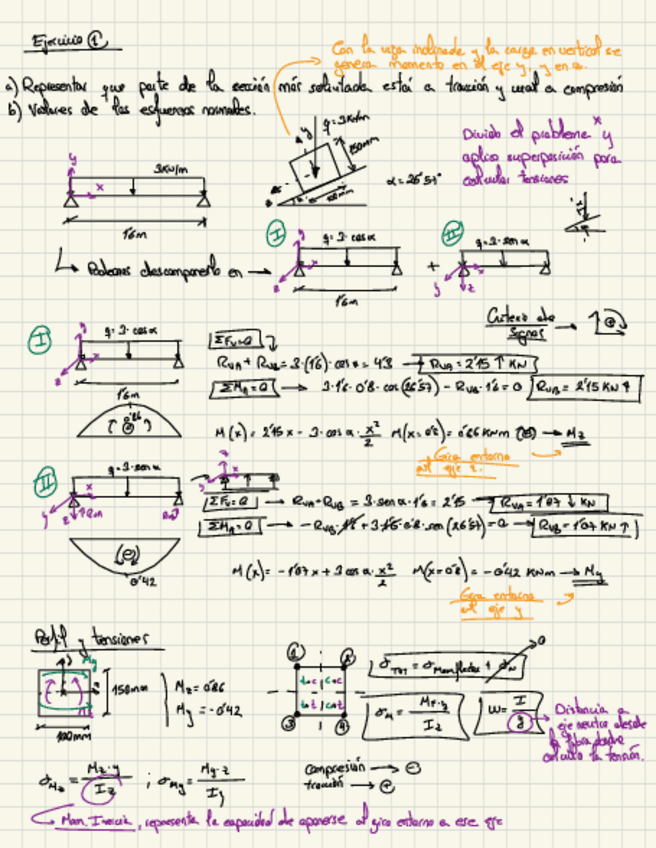 Ejercicio ①
Con la viga inclinada y la carga en vertical se
genera momento en el eje y, y en z.
a) Representar que parte de la sección más solicitada está a tracción y cual a compresión
b) Valores de los esfuerzos normales.
q = 3 kN/m
150mm
100mm
α = 26'57°
Divido el problema y
aplico superposición para
calcular tensiones
y
x
3kN/m
1'6m
Podemos descomponerlo en →
I
q = 3·cosα
1'6m
+
II
q = 3·senα
y
z
Criterio de
signos →
I
q = 3·cosα
1'6m
0'86
ΣFv=0
RVA + RVB = 3·(1'6)·cosα = 4'3 → RVA = 2'15 ↑ KN
ΣMA=0 → 3·1'6·0'8·cos(26'57) - RVB·1'6 = 0 RVB = 2'15 KN ↑
M(x) = 2'15x - 3·cosα·x²/2 M(x=0'8) = 0'86 KNm (+) → Mz
Gira entorno
al eje z.
II
q = 3·senα
0'42
ΣFv=0 → RVA + RVB = 3·senα·1'6 = 2'15 → RVA = 1'07 ↓ KN
ΣMA=0 → -RVB·1'6 + 3·1'6·0'8·sen(26'57) = 0 → RVB = 1'07 KN ↑
M(x) = -1'07x + 3cosα·x²/2 M(x=0'8) = -0'42 KNm → My
Gira entorno
al eje y
Perfil y tensiones
My
150mm
100mm
Mz = 0'86
My = -0'42
① ②
t.c | c.c
t.t | c.t
③ ④
σTOT = σMom.flector + σN → 0
σM = MF·z / Iz
W = I / y
Distancia a
eje neutro desde
la fibra donde
calculo la tensión.
σMz = Mz·y / Iz ; σMy = My·z / Iy
Compresión → ⊖
tracción → ⊕
Mom. Inercia, representa la capacidad de oponerse al giro entorno a ese eje